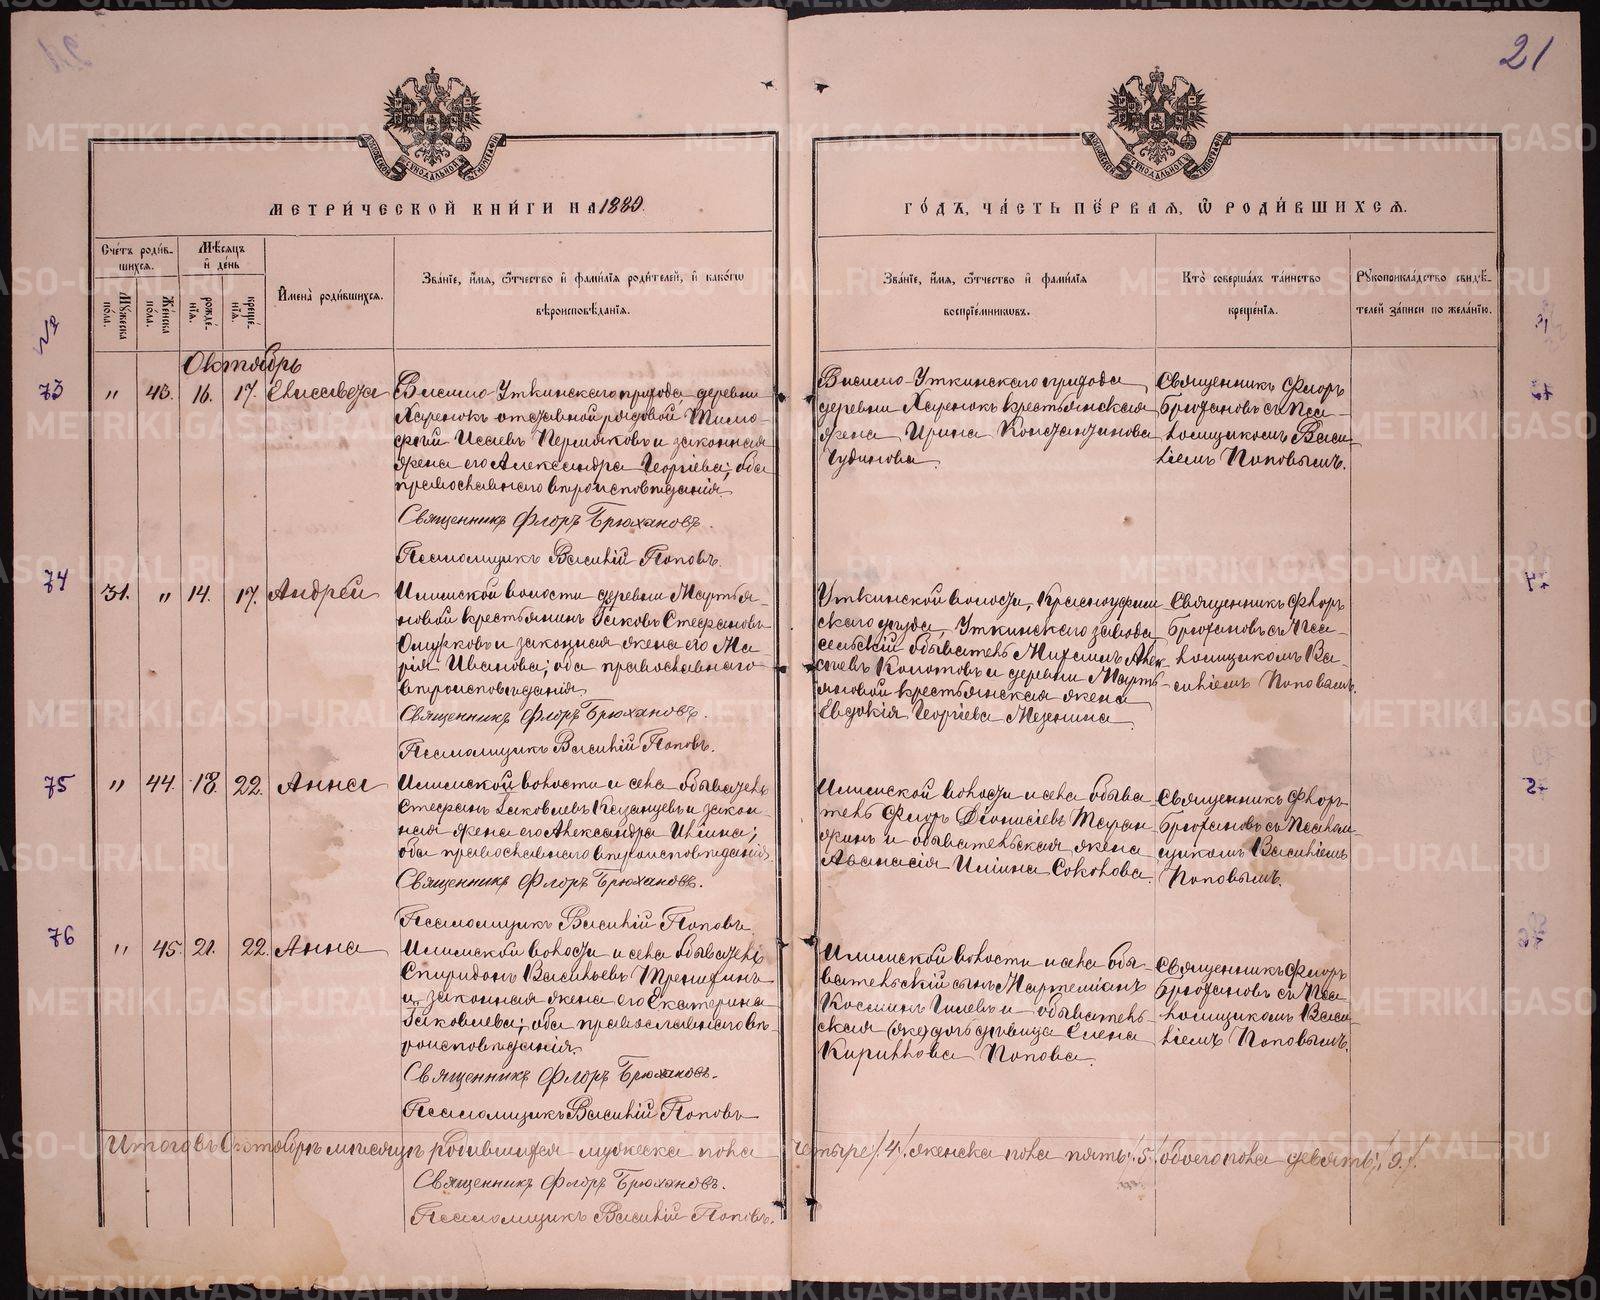 21
МЕТРИ́ЧЕСКОЙ КНИ́ГИ НА 1880
ГО́ДЪ, ЧА́СТЬ ПЕ́РВАЯ, Ѡ РОДИ́ВШИХСЯ.
Сче́тъ роди́в-
шихся.
Мѣ́сяцъ
и де́нь
Му́жеска по́ла.
Же́нска по́ла.
рожде́-
нія.
креще́-
нія.
Имена̀ роди́вшихся.
Зва́ніе, и́мя, ѻ́тчество и фами́лія роди́телей, и како́гѡ
вѣроисповѣ́данія.
Зва́ніе, и́мя, ѻ́тчество и фами́лія
воспріе́мниковъ.
Кто̀ соверша́лъ та́инство
креще́нія.
Рукоприкла́дство свидѣ́-
телей за́писи по жела́нію.
Октябрь
73
" 43. 16. 17. Елисавета
Висимо-Уткинскаго прихода деревни
Харенокъ отставной рядовой Тимо-
фей Исаевъ Пермяковъ и законная
жена его Александра Георгіева; оба
православнаго вѣроисповѣданія.
Священникъ Флоръ Брюхановъ.
Псаломщикъ Василій Поповъ.
Висимо-Уткинскаго прихода
деревни Харенокъ крестьянская
жена Ирина Константинова
Чудинова.
Священникъ Флоръ
Брюхановъ съ Пса-
ломщикомъ Васи-
ліемъ Поповымъ.
74
31. " 14. 17. Андрей
Илимской волости деревни Мартья-
новой крестьянинъ Іаковъ Стефановъ
и законная жена его Ма
рія Иванова; оба православнаго
вѣроисповѣданія
Священникъ Флоръ Брюхановъ.
Псаломщикъ Василій Поповъ.
Уткинской волости, Красноуфим
скаго уѣзда, Уткинскаго завода
сельскій обыватель Михаилъ Алек
сѣевъ и деревни Марть-
яновой крестьянская жена
Евдокія Георгіева Мезенина
Священникъ Флоръ
Брюхановъ съ Пса-
ломщикомъ Ва-
силіемъ Поповымъ.
75
" 44. 18. 22. Анна
Илимской волости и села обыватель
Стефанъ Іаковлевъ Казанцевъ и закон-
ная жена его Александра Ильина;
оба православнаго вѣроисповѣданія.
Священникъ Флоръ Брюхановъ.
Псаломщикъ Василій Поповъ.
Илимской волости и села обыва
тель Флоръ Діонисіевъ Таран
жинъ и обывательская жена
Аѳанасія Ильина Соколова.
Священникъ Флоръ
Брюхановъ съ Псалом
щикомъ Василіемъ
Поповымъ.
76
" 45. 21. 22. Анна
Илимской волости и села обыватель
Спиридонъ Васильевъ Трепифинъ
и законная жена его Екатерина
Іаковлева; оба православнаго вѣ-
роисповѣданія.
Священникъ Флоръ Брюхановъ.
Псаломщикъ Василій Поповъ
Илимской волости и села обы-
вательскій сынъ Мартеміанъ
Косминъ Гилевъ и обыватель-
ская (же) дочь дѣвица Елена
Кириллова Попова.
Священникъ Флоръ
Брюхановъ съ Пса
ломщикомъ Васи-
ліемъ Поповымъ.
Итого въ Октябрѣ мѣсяцѣ родившихся мужеска пола четыре /4/ женска пола пять /5/ обоего пола девять /9/.
Священникъ Флоръ Брюхановъ.
Псаломщикъ Василій Поповъ.
METRIKI.GASO-URAL.RU